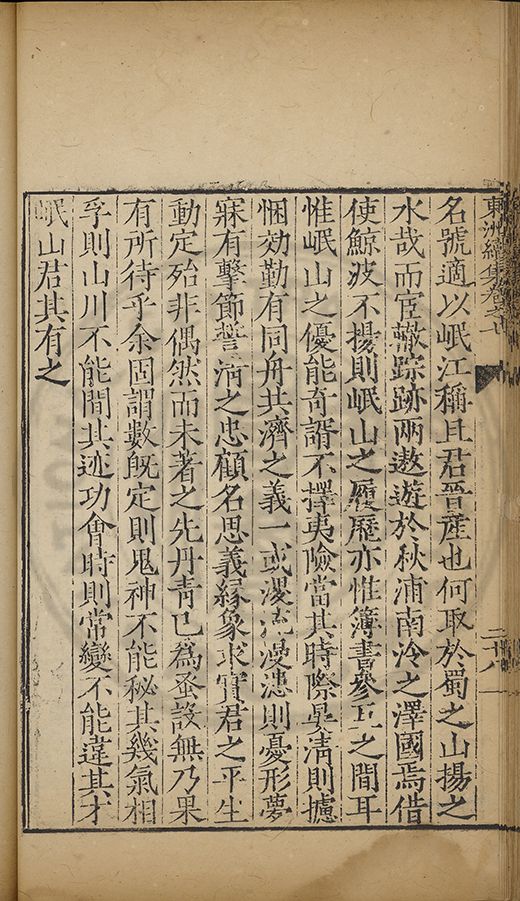 東洲續集卷之十
二十八
名號適以岷江稱且君晉産也何取於蜀之山揚之
水哉而宦轍踪跡兩遨遊於秋浦南泠之澤國焉借
使鯨波不揚則岷山之履歷亦惟簿書參互之間耳
惟岷山之優能奇諝不擇夷險當其時際晏清則攄
悃効勤有同舟共濟之義一或漫漶則憂形夢
寐有擊節誓清之忠顧名思義緣象求實君之平生
動定殆非偶然而未著之先丹青已爲蚤設無乃果
有所待乎余固謂數旣定則鬼神不能秘其幾氣相
孚則山川不能間其迹功會時則常變不能違其才
岷山君其有之